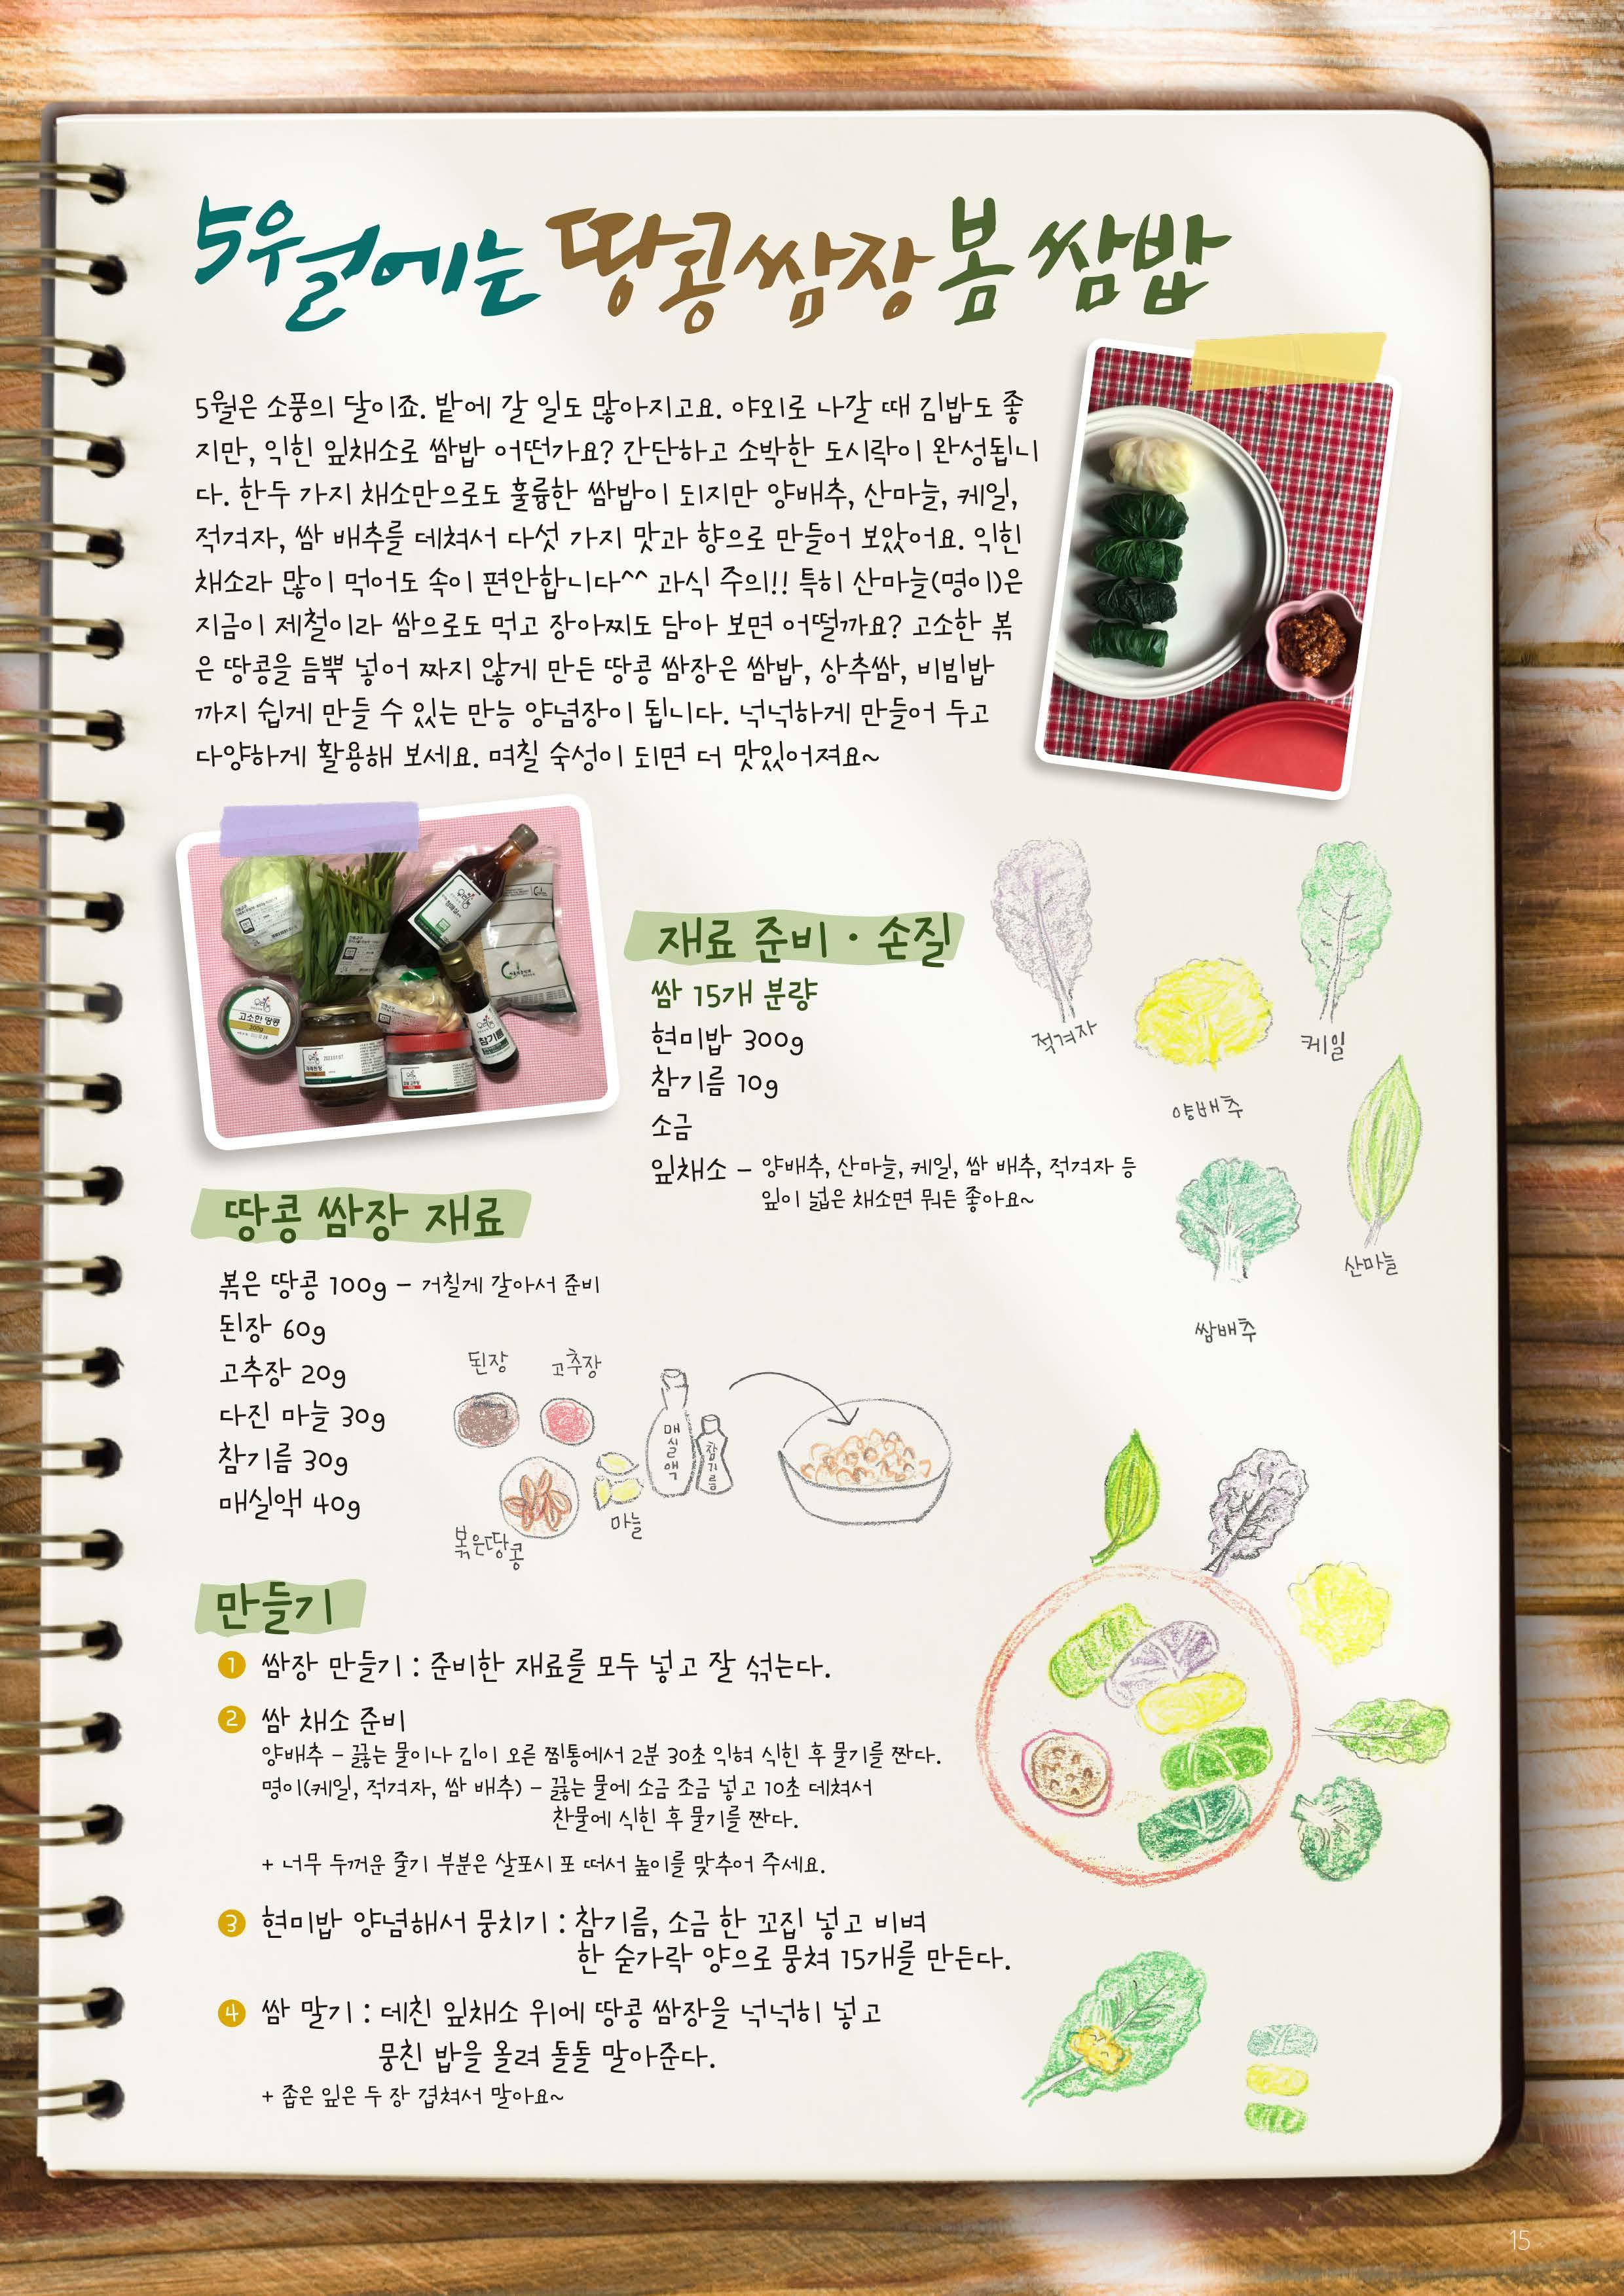 5월에는 땅콩쌈장 봄 쌈밥
5월은 소풍의 달이죠. 밭에 갈 일도 많아지고요. 야외로 나갈 때 김밥도 좋
지만, 익힌 잎채소로 쌈밥 어떤가요? 간단하고 소박한 도시락이 완성됩니
다. 한두 가지 채소만으로도 훌륭한 쌈밥이 되지만 양배추, 산마늘, 케일,
적겨자, 쌈 배추를 데쳐서 다섯 가지 맛과 향으로 만들어 보았어요. 익힌
채소라 많이 먹어도 속이 편안합니다^^ 과식 주의!! 특히 산마늘(명이)은
지금이 제철이라 쌈으로도 먹고 장아찌도 담아 보면 어떨까요? 고소한 볶
은 땅콩을 듬뿍 넣어 짜지 않게 만든 땅콩 쌈장은 쌈밥, 상추쌈, 비빔밥
까지 쉽게 만들 수 있는 만능 양념장이 됩니다. 넉넉하게 만들어 두고
다양하게 활용해 보세요. 며칠 숙성이 되면 더 맛있어져요~
고소한 땅콩
200g
참기름
재료 준비 · 손질
쌈 15개 분량
현미밥 300g
참기름 10g
소금
잎채소 - 양배추, 산마늘, 케일, 쌈 배추, 적겨자 등
잎이 넓은 채소면 뭐든 좋아요~
적겨자
케일
양배추
산마늘
쌈배추
땅콩 쌈장 재료
볶은 땅콩 100g - 거칠게 갈아서 준비
된장 60g
고추장 20g
다진 마늘 30g
참기름 30g
매실액 40g
된장
고추장
매실액
참기름
마늘
볶은땅콩
만들기
1 쌈장 만들기 : 준비한 재료를 모두 넣고 잘 섞는다.
2 쌈 채소 준비
양배추 - 끓는 물이나 김이 오른 찜통에서 2분 30초 익혀 식힌 후 물기를 짠다.
명이(케일, 적겨자, 쌈 배추) - 끓는 물에 소금 조금 넣고 10초 데쳐서
찬물에 식힌 후 물기를 짠다.
+ 너무 두꺼운 줄기 부분은 살포시 포 떠서 높이를 맞추어 주세요.
3 현미밥 양념해서 뭉치기 : 참기름, 소금 한 꼬집 넣고 비벼
한 숟가락 양으로 뭉쳐 15개를 만든다.
4 쌈 말기 : 데친 잎채소 위에 땅콩 쌈장을 넉넉히 넣고
뭉친 밥을 올려 돌돌 말아준다.
+ 좁은 잎은 두 장 겹쳐서 말아요~
15